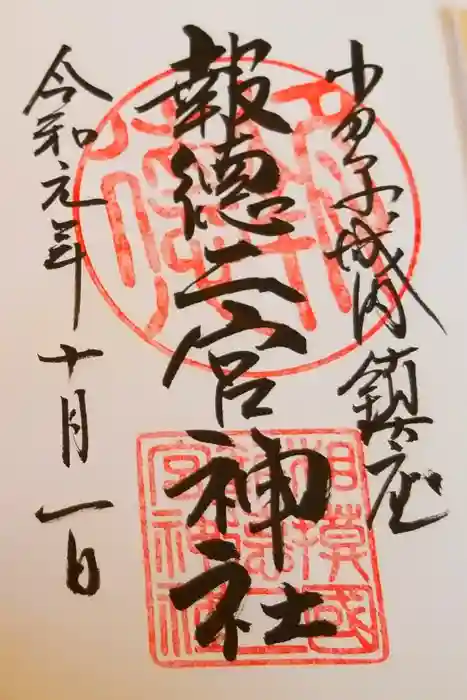 小田原城内鎮座
報徳二宮神社
令和元年十月一日
相模國
報徳二
宮神社